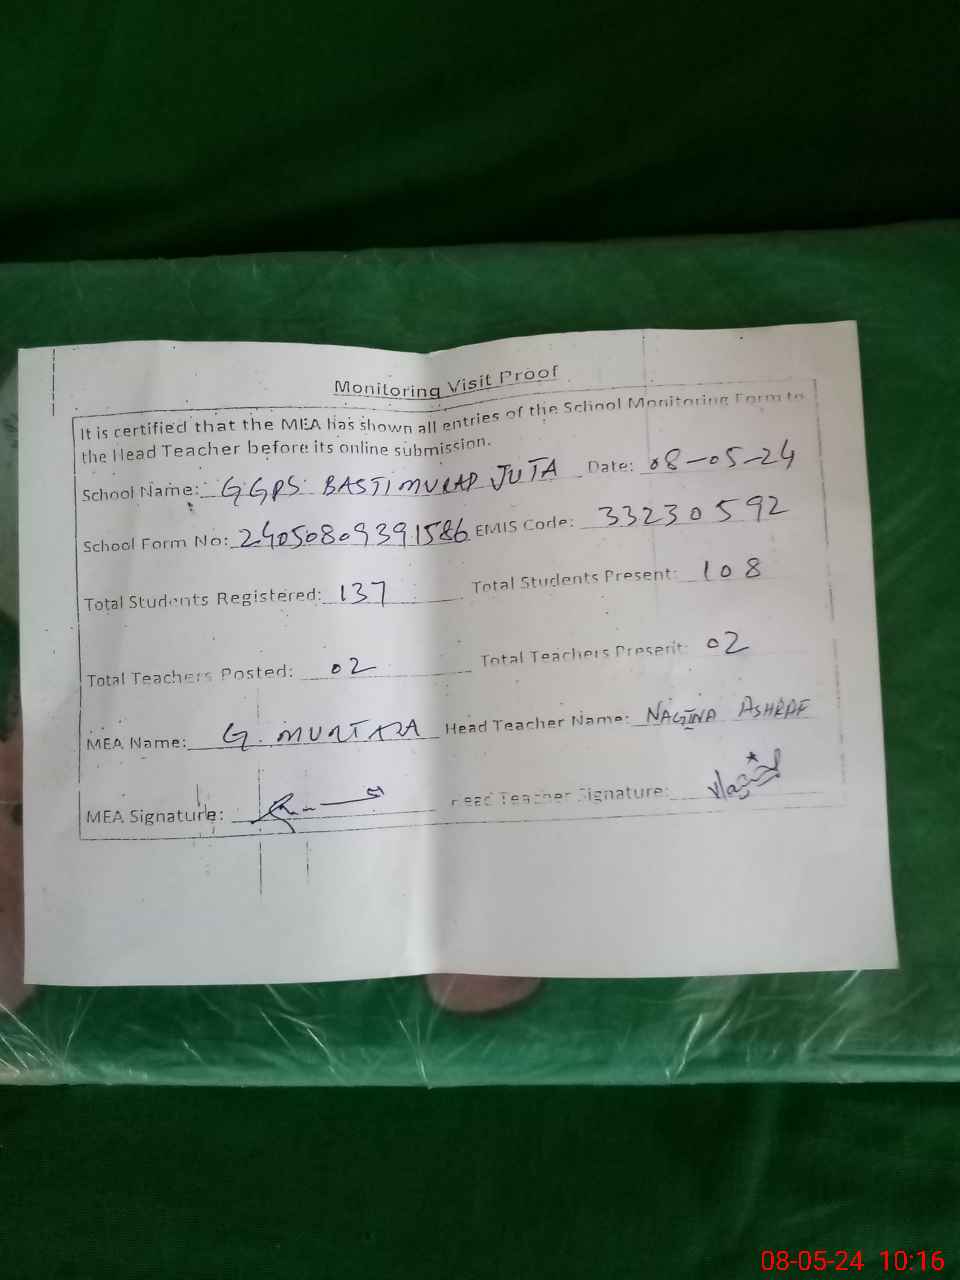 Monitoring Visit Proof
It is certified that the MEA has shown all entries of the School Monitoring Form to
the Head Teacher before its online submission.
School Name: GGPS BASTI MURAD JUTA Date: 08-05-24
School Form No: 24050809391586 EMIS Code: 33230592
Total Students Registered: 137 Total Students Present: 108
Total Teachers Posted: 02 Total Teachers Present: 02
MEA Name: G. MURTAZA Head Teacher Name: NAGINA ASHRAF
MEA Signature: Head Teacher Signature:
08-05-24 10:16